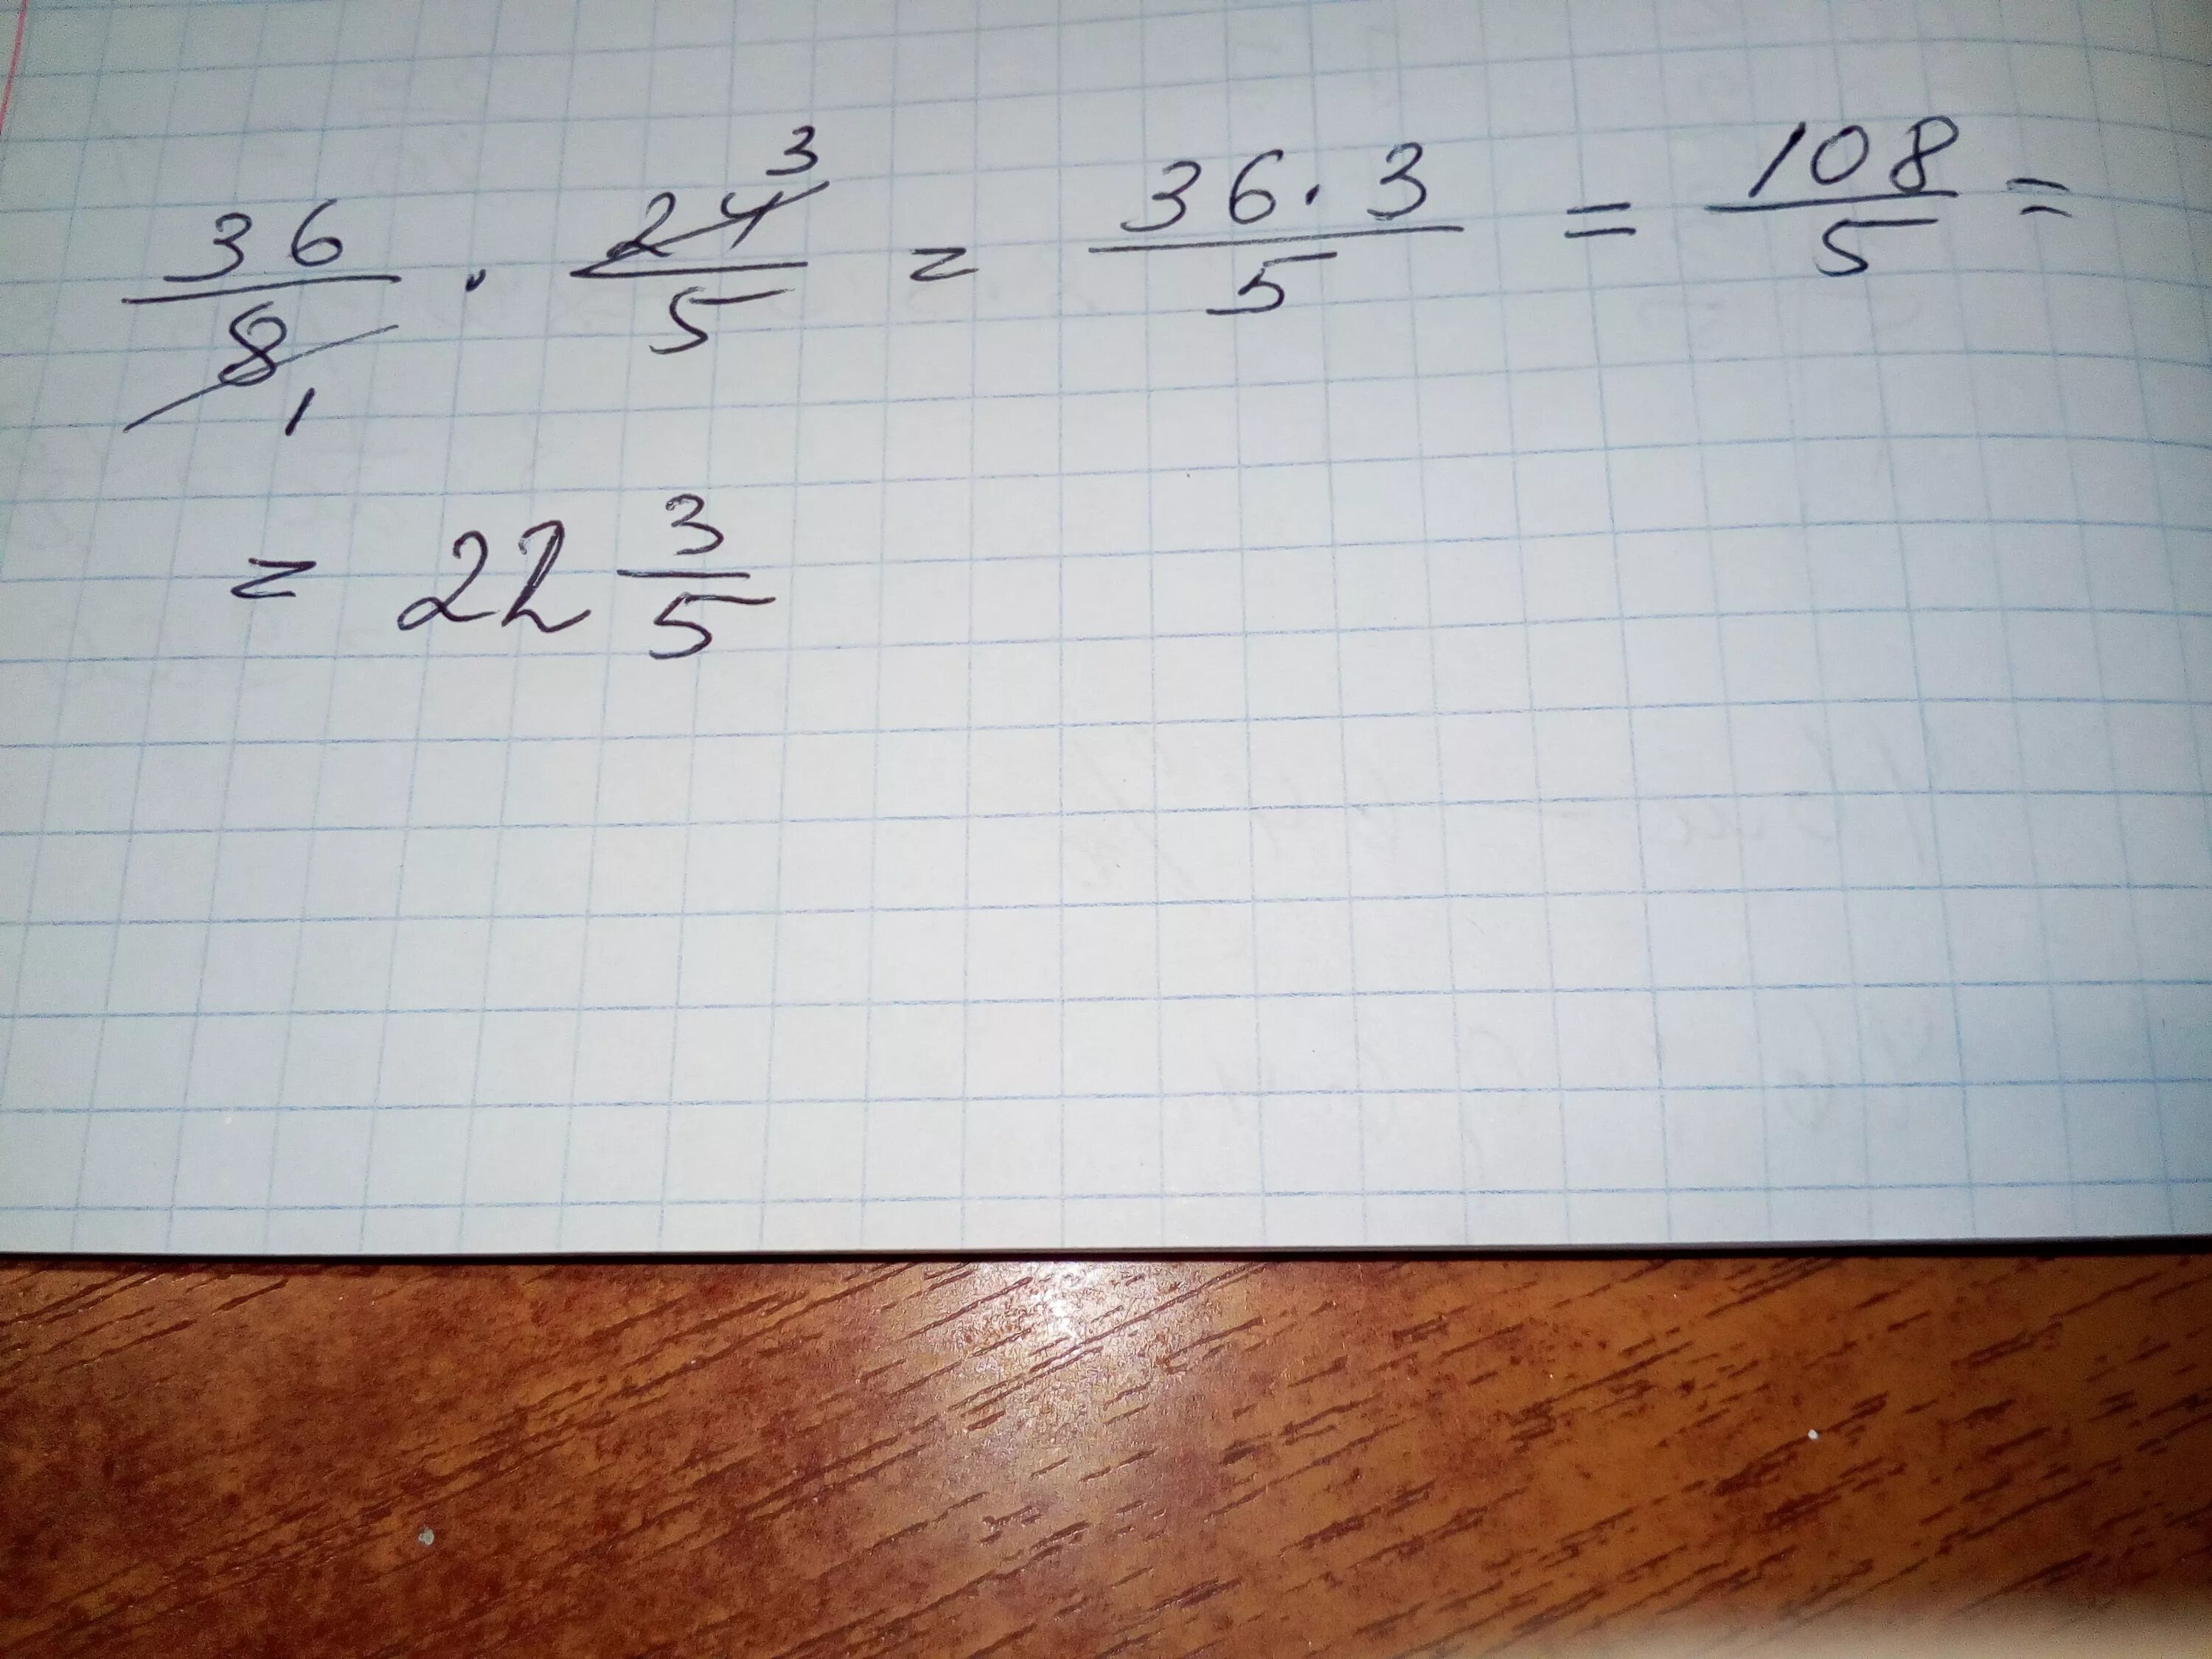 36/8 1 · 24 3/5 = 36·3/5 = 108/5 =
= 22 3/5